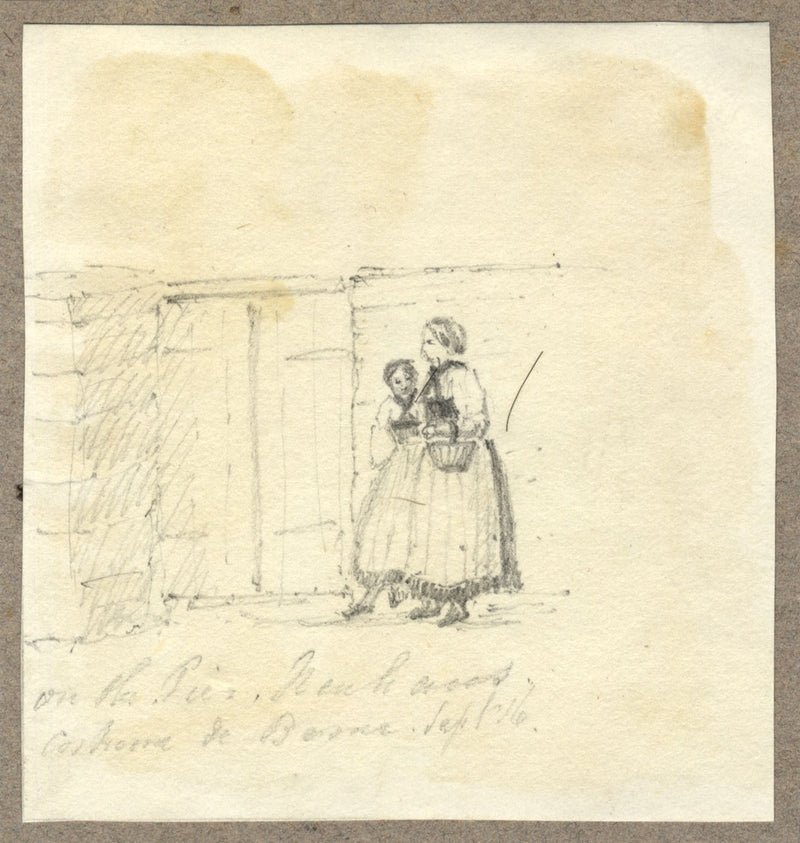 on the Pier. Neuhaus.
Costume de Berne. Sept 16.